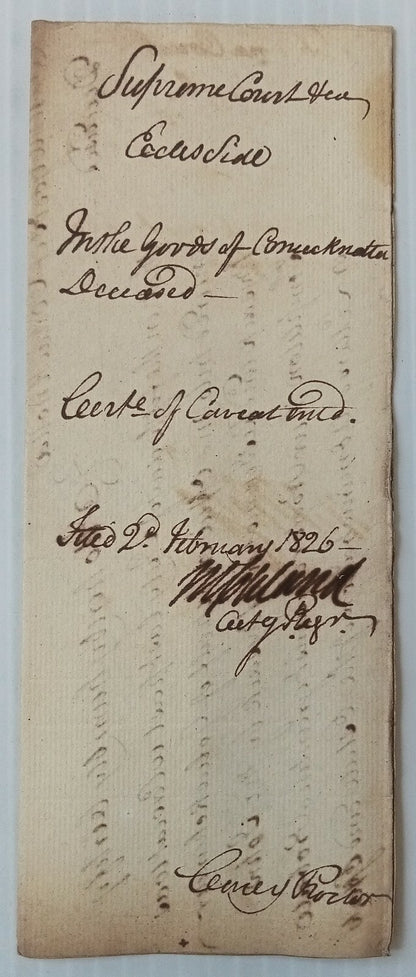 Supreme Court &ca
Eccles Side
In the Goods of
Deceased —
Certe. of Caveat
Filed 2d. February 1826 —
Actg Regr.
Proctor